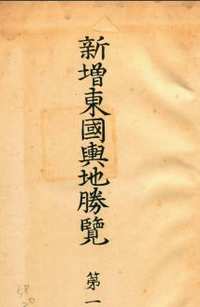 新增東國輿地勝覽
第一